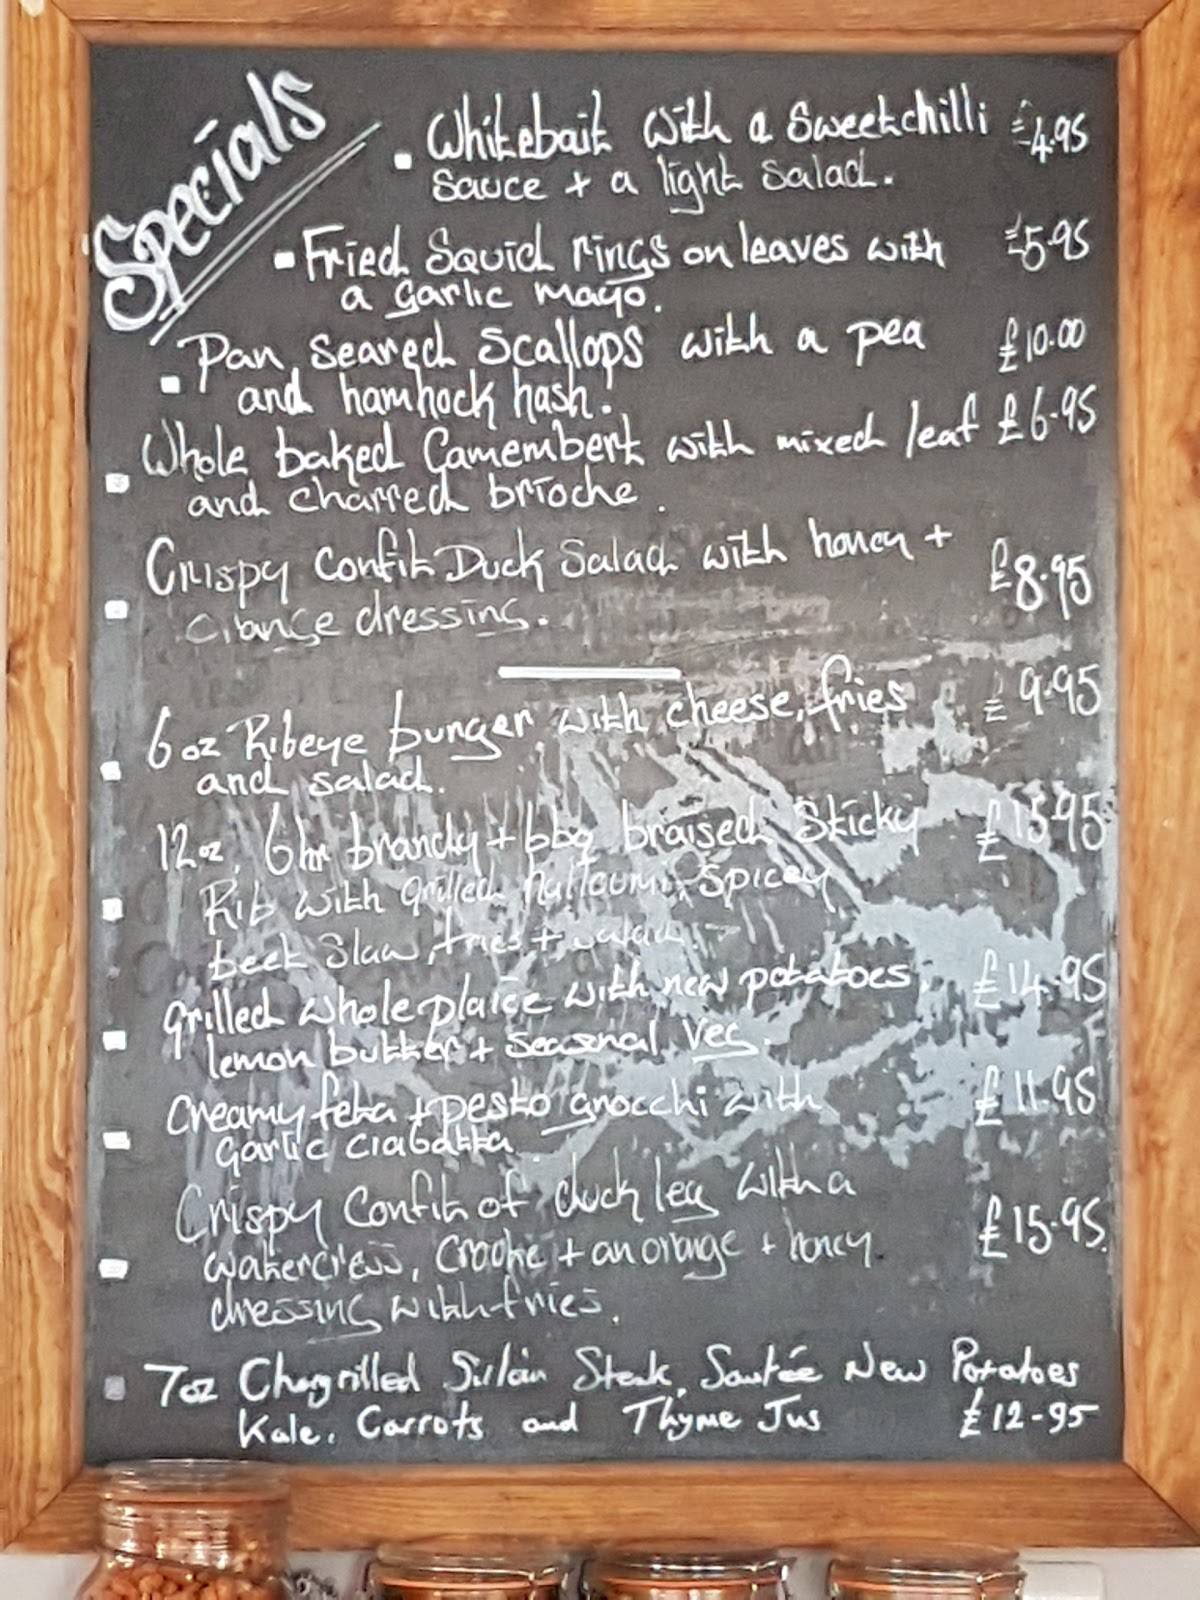 Specials
Whitebait with a Sweetchilli £4.95
Sauce + a light Salad.
Fried Squid rings on leaves with £5.95
a garlic mayo.
Pan Seared Scallops with a pea £10.00
and hamhock hash.
Whole baked Camembert with mixed leaf £6.95
and charred brioche.
Crispy Confit Duck Salad with honey + £8.95
orange dressing.
6oz Ribeye burger with cheese, fries £9.95
and salad.
12oz, 6hr brandy + bbq braised Sticky £15.95
Rib with grilled halloumi, Spicey
beet Slaw, fries + salad.
grilled whole plaice with new potatoes, £14.95
lemon butter + Seasonal Veg.
Creamy feta + pesto gnocchi with £11.95
garlic ciabatta.
Crispy Confit of duck leg with a
watercress, + an orange + honey £15.95
dressing with fries.
7oz Chargrilled Sirloin Steak, Sautée New Potatoes
Kale, Carrots and Thyme Jus £12-95